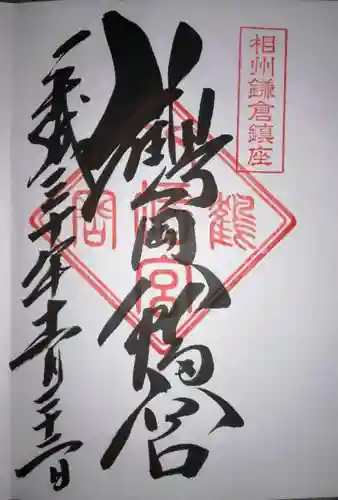 相州鎌倉鎮座
鶴岡八幡宮
鶴岡八幡宮
平成三十年十一月二十二日